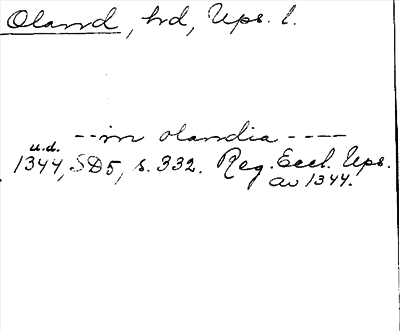 Oland, hd, Ups. l.
--in olandia ----
u.d.
1344, SD5, s. 332. Reg. Eccl. Ups.
av 1344.